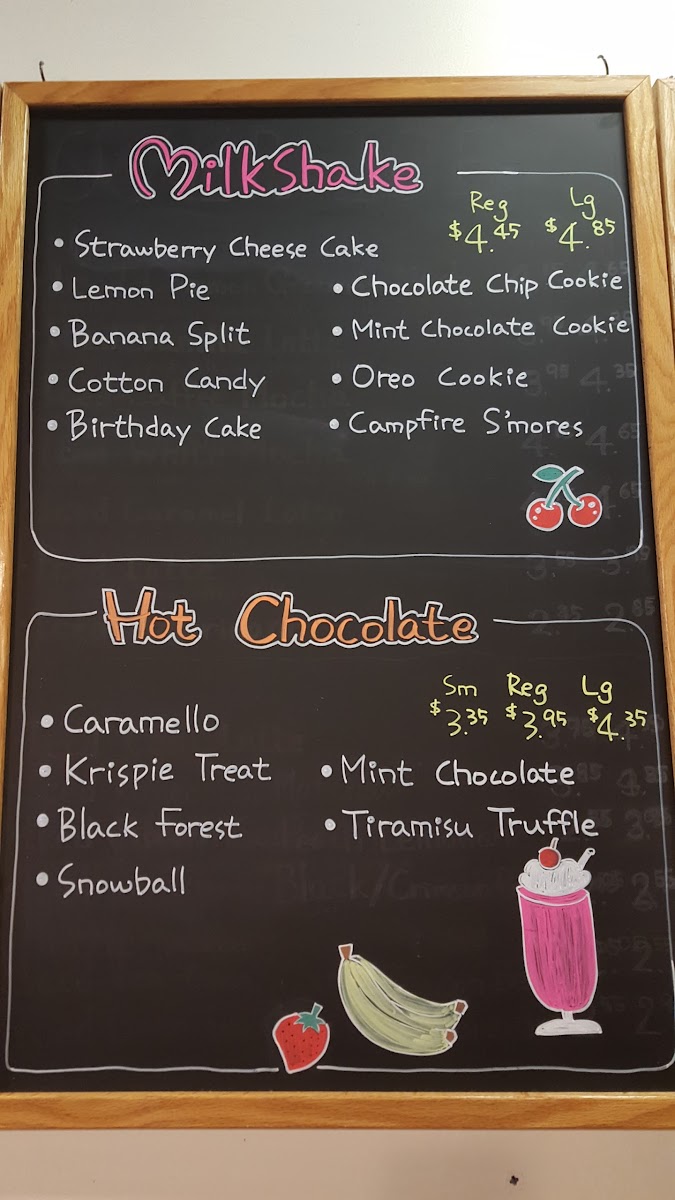 MilkShake
Reg Lg
$4.45 $4.85
• Strawberry Cheese Cake
• Lemon Pie
• Banana Split
• Cotton Candy
• Birthday Cake
• Chocolate Chip Cookie
• Mint Chocolate Cookie
• Oreo Cookie
• Campfire S'mores
Hot Chocolate
Sm Reg Lg
$3.35 $3.95 $4.35
• Caramello
• Krispie Treat
• Black Forest
• Snowball
• Mint Chocolate
• Tiramisu Truffle